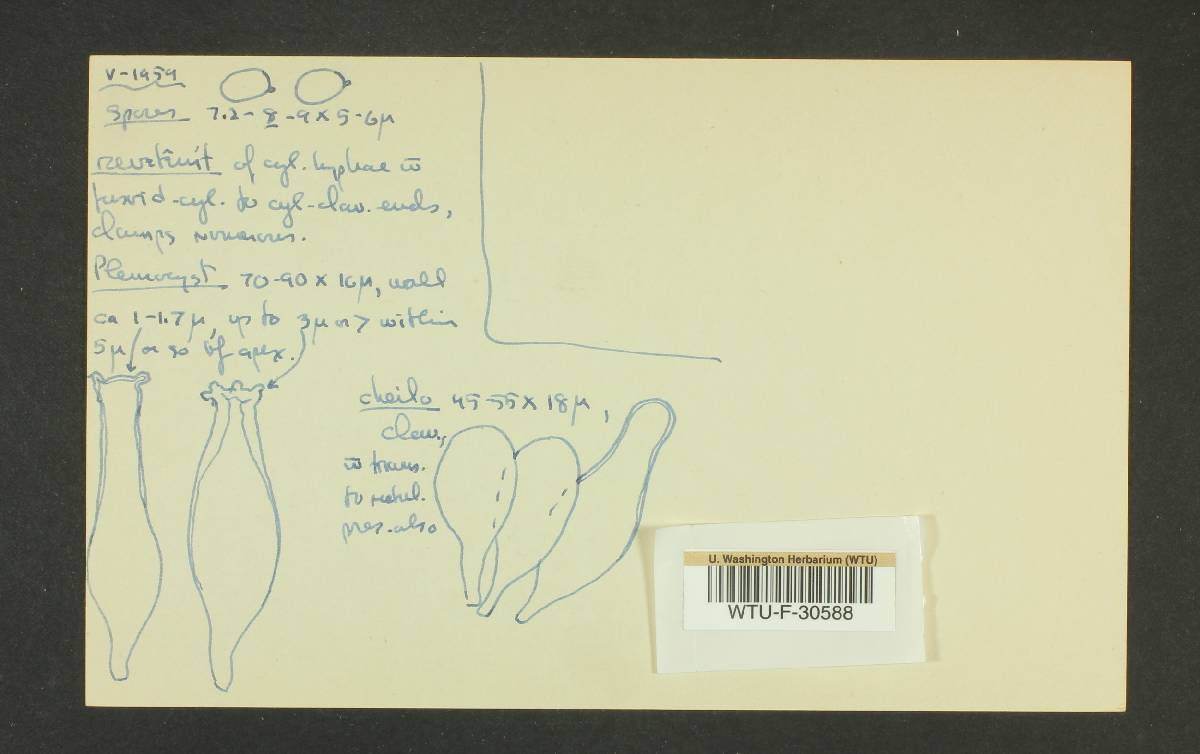 V-1959
Spores 7.2-8-9 x 5-6µ
of cyl. hyphae w̄
fusoid-cyl. to cyl-clav. ends,
clamps numerous.
Pleurocyst. 70-90 x 16µ, wall
ca 1-1.7µ, up to 3µ or > within
5µ or so of apex.
cheilo 45-55 x 18µ,
clav.,
w̄ trans.
to
pres. also
U. Washington Herbarium (WTU)
WTU-F-30588